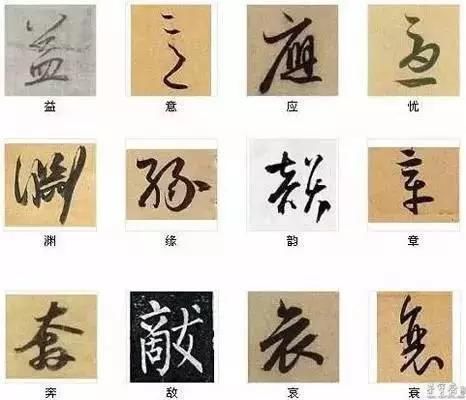 益 意 应 忧
渊 缘 韵 章
奔 敌 哀 衰